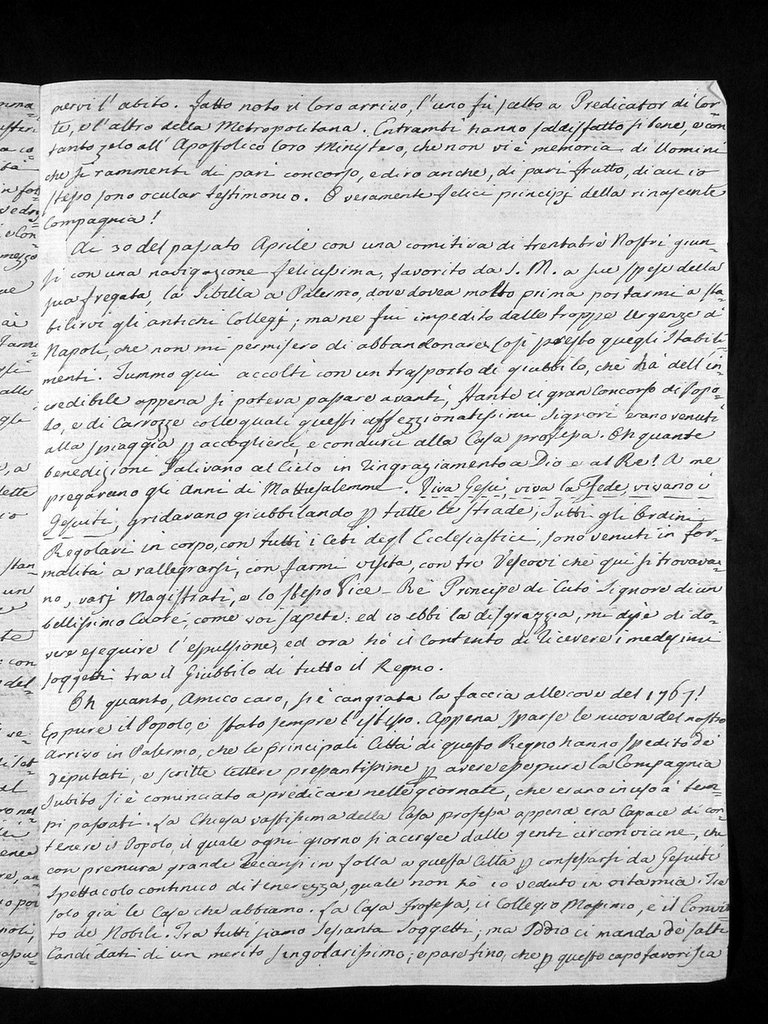 nervi l'abito. Fatto noto il loro arrivo, l'uno fù scelto a Predicator di Cor-
te, e l'altro della Metropolitana. Entrambi hanno soddisfatto sì bene, e con
tanto zelo all'Appostolico loro Ministero, che non vi è memoria di Uomini
che si rammenti di pari concorso, e dirò anche, di pari frutto, di cui io
stesso sono ocular testimonio. O veramente felici principj della rinascente
Compagnia!
Ai 30 del passato Aprile con una comitiva di trentatrè Nostri giun-
si con una navigazione felicissima, favorito da S. M. a sue spese della
sua fregata, la Sibilla a Palermo, dove dovea molto prima portarmi a sta-
bilirvi gli antichi Collegj; ma ne fui impedito dalle troppe Urgenze di
Napoli, che non mi permisero di abbandonare così presto quegli Stabili-
menti. Fummo qui accolti con un trasporto di giubbilo, che hà dell'in-
credibile appena si poteva passare avanti, stante il gran Concorso di Popo-
lo, e di Carrozze colle quali questi affezzionatissimi Signori erano venuti
alla spiaggia p accoglierci, e condurci alla Casa professa. Oh quante
benedizioni salivano al Cielo in ringraziamento a Dio e al Re! A me
pregavano gli Anni di Mattusalemme. Viva Gesù, viva la Fede, vivano i
Gesuiti, gridavano giubbilando p tutte le strade, Tutti gli Ordini
Regolari in corpo, con tutti i Ceti degl'Ecclesiastici, sono venuti in for-
malità a rallegrarsi, con farmi visita, con tre Vescovi che quì si trovava-
no, varj Magistrati, e lo stesso Vice-Rè Principe di Cutò Signore di un
bellissimo Cuore, come voi sapete: ed io ebbi la disgrazzia, mi disse di do-
vere eseguire l'espulsione, ed ora hò il contento di ricevere i medesimi
soggetti tra il Giubbilo di tutto il Regno.
Oh quanto, Amico caro, si è cangiata la faccia alle cose del 1767!
Eppure il Popolo, è stato sempre l'istesso. Appena sparse le nuova del nostro
Arrivo in Palermo, che le principali Città di questo Regno hanno spedito de'
deputati, e scritte lettere pressantissime p avere esse pure la Compagnia
Subito si è cominciato a predicare nelle giornate, che erano in uso a' tem-
pi passati. La Chiesa vastissima della Casa professa appena era capace di con-
tenere il Popolo, il quale ogni giorno si accresce dalle genti circonvicine, che
con premura grande recansi in folla a questa Città p confessarsi da Gesuiti
Spettacolo continuo di tenerezza, quale non hò io veduto in vita mia. Tre
solo già le Case che abbiamo. La Casa Professa, il Collegio Massimo, e il Convit-
to de' Nobili. Tra tutti siamo sessanta soggetti; ma Iddio ci manda de' santi
Candidati di un merito singolarissimo; e pare fino, che p questo capo favorisca